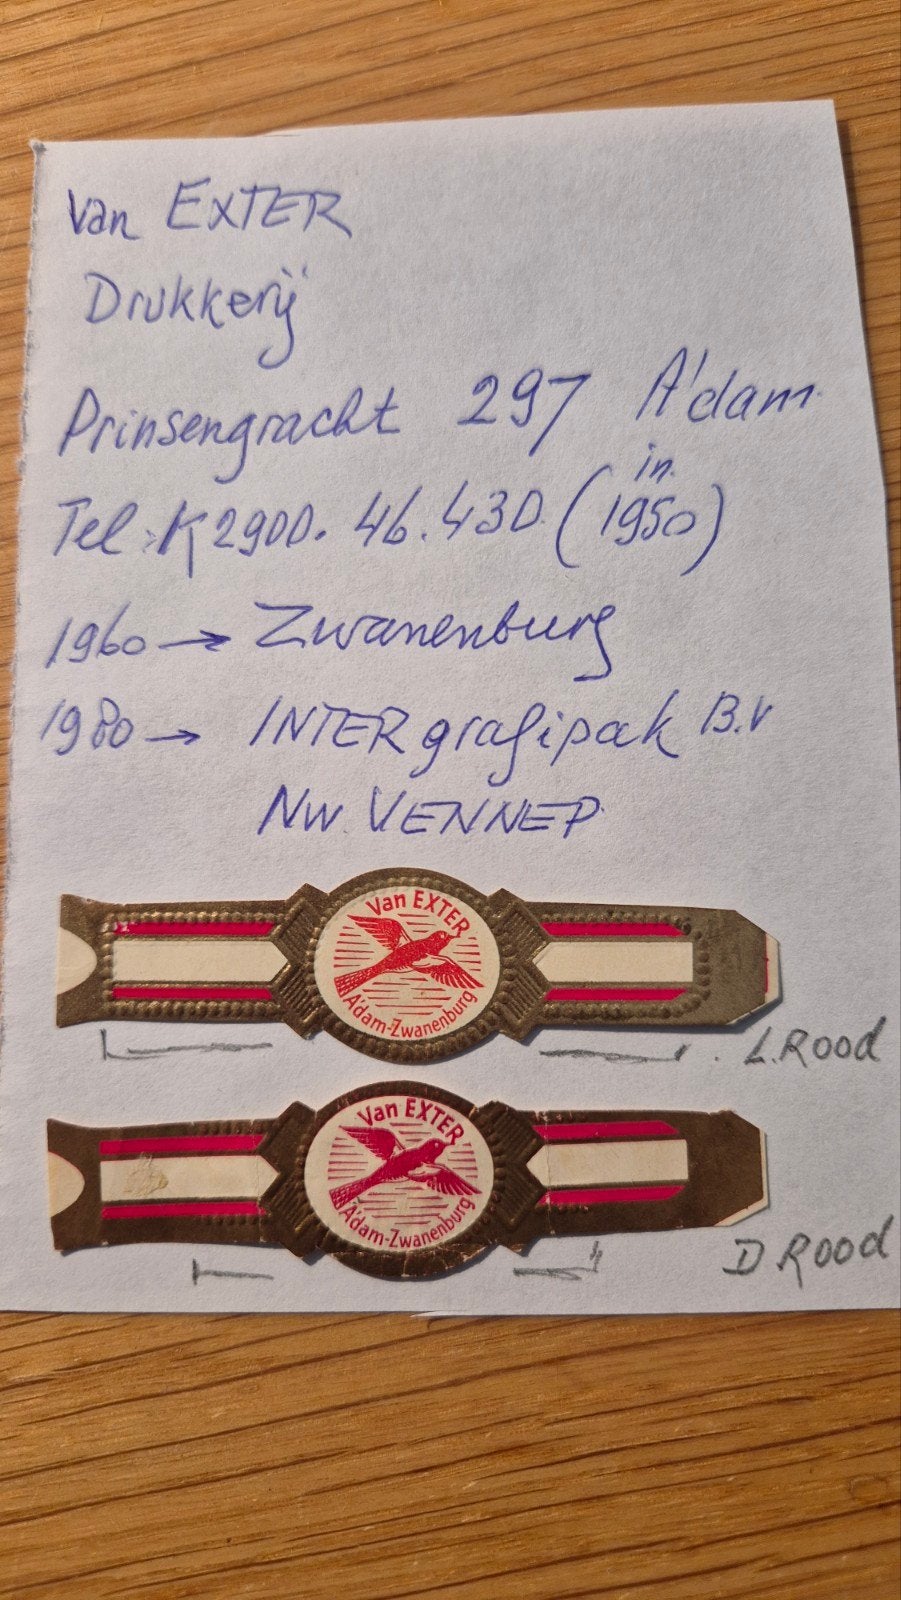 Van EXTER
Drukkerij
Prinsengracht 297 A'dam
Tel: K2900. 46.430. (in 1950)
1960 → Zwanenburg
1980 → INTERgrafipak B.V
NW. VENNEP
Van EXTER
A'dam-Zwanenburg
L. Rood
Van EXTER
A'dam-Zwanenburg
D Rood